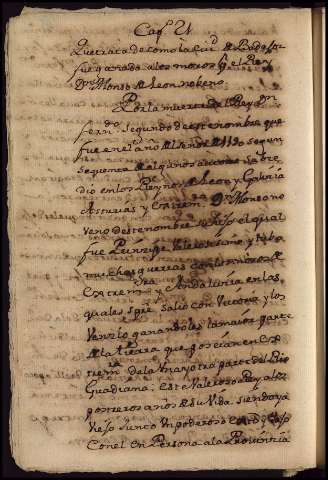 Cap. 21
Que trata de como la Ciud de Badajoz
fue ganada a los moros por el Rey
Dn Alonso de Leon noveno
Por la muerte del Rey Dn
fern.do segundo de este nombre que
fue en el año del Señor de 1190 segun
se quenta de algunos autores
dio en los Reynos de Leon y Galizia
Asturias y Extrem.ra Dn Alonso no
veno de este nombre su hijo el qual
fue Prinzipe Valerosisimo y tubo
muchas guerras con los moros de
Extrem.ra y Andaluzia en las
quales sipre salio con Victoria y los
Venzio ganandoles la mayor parte
de la tierra que poseian en Ex
trem.ra de la mayor parte del Rio
Guadiana: este Valeroso Rey a los
postreros años de su Vida siendo ya
Viejo Junto un poderoso
Con el en Persona a la Provinzia